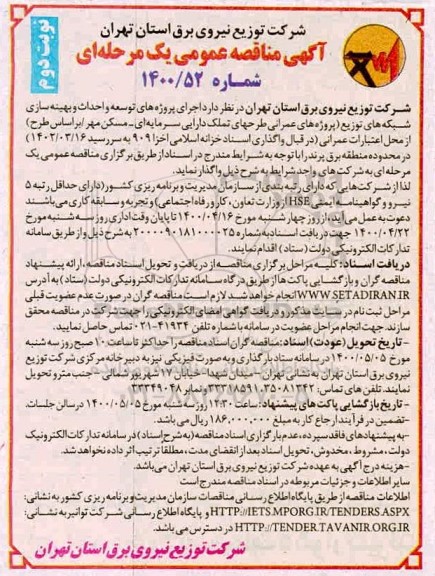 نوبت دوم
شرکت توزیع نیروی برق استان تهران
آگهی مناقصه عمومی یک مرحله‌ای
شماره ۱۴۰۰/۵۲
شرکت توزیع نیروی برق استان تهران در نظر دارد اجرای پروژه های توسعه و احداث و بهینه سازی
شبکه های توزیع (پروژه های عمرانی طرحهای تملک دارایی سرمایه‌ای_مسکن مهر/بر اساس طرح)
از محل اعتبارات عمرانی (در قبال واگذاری اسناد خزانه اسلامی اخزا ۹۰۹ به سررسید ۱۴۰۲/۰۳/۱۶)
در محدوده منطقه برق پرند را با توجه به شرایط مندرج در اسناد از طریق برگزاری مناقصه عمومی یک
مرحله ای به شرکت های واجد شرایط به شرح ذیل واگذار نماید.
لذا از شرکت هایی که دارای رتبه بندی از سازمان مدیریت و برنامه ریزی کشور (دارای حداقل رتبه ۵
نیرو و گواهینامه ایمنی HSE از وزارت تعاون، کار و رفاه اجتماعی) و تجربه و سابقه کاری می باشند
دعوت به عمل می آید، از روز چهار شنبه مورخ ۱۴۰۰/۰۴/۱۶ تا پایان وقت اداری روز سه شنبه مورخ
۱۴۰۰/۰۴/۲۲ جهت دریافت اسناد به شماره ۲۰۰۰۰۹۰۱۸۱۰۰۰۰۲۵ به شرح ذیل و از طریق سامانه
تدارکات الکترونیکی دولت (ستاد) اقدام نمایند.
دریافت اسناد: کلیه مراحل برگزاری مناقصه از دریافت و تحویل اسناد مناقصه، ارائه پیشنهاد
مناقصه گران و بازگشایی پاکت ها از طریق درگاه سامانه تدارکات الکترونیکی دولت (ستاد) به آدرس
WWW.SETADIRAN.IR انجام خواهد شد. لازم است مناقصه گران در صورت عدم عضویت قبلی
مراحل ثبت نام در سایت مذکور و دریافت گواهی امضای الکترونیکی را جهت شرکت در مناقصه محقق
سازند. جهت انجام مراحل عضویت در سامانه با شماره تلفن ۴۱۹۳۴-۰۲۱ تماس حاصل نمایید.
- تاریخ تحویل (عودت) اسناد: مناقصه گران اسناد مناقصه را حداکثر تا ساعت ۱۰ صبح روز سه شنبه
مورخ ۱۴۰۰/۰۵/۰۵ در سامانه ستاد بارگذاری و به صورت فیزیکی نیز به دبیرخانه مرکزی شرکت توزیع
نیروی برق استان تهران به نشانی تهران- میدان شهدا- خیابان ۱۷ شهریور شمالی- جنب مترو تحویل
نمایند. تلفن های تماس: ۳۵۰۸۱۳۴۲، ۳۳۳۱۸۵۹۱ و نمابر ۳۳۳۴۹۰۴۸
- تاریخ بازگشایی پاکت های پیشنهاد: ساعت ۱۴:۳۰ روز سه شنبه مورخ ۱۴۰۰/۰۵/۰۵ در سالن جلسات.
- تضمین در فرآیند ارجاع کار به مبلغ ۱۸۶,۰۰۰,۰۰۰ ریال می باشد.
-به پیشنهادهای فاقد سپرده، عدم بارگزاری اسناد مناقصه (به شرح اسناد) در سامانه تدارکات الکترونیک
دولت، مشروط، مخدوش، تحویل اسناد بعد از انقضای مدت، مطلقا ترتیب اثر داده نخواهد شد.
-هزینه درج آگهی به عهده شرکت توزیع نیروی برق استان تهران می‌باشد.
سایر اطلاعات و جزئیات مربوطه در اسناد مناقصه مندرج است
اطلاعات مناقصه از طریق پایگاه اطلاع رسانی مناقصات سازمان مدیریت و برنامه ریزی کشور به نشانی:
HTTP://IETS.MPORG.IR/TENDERS.ASPX و پایگاه اطلاع رسانی شرکت توانیر به نشانی:
HTTP://TENDER.TAVANIR.ORG.IR در دسترس می باشد.
شرکت توزیع نیروی برق استان تهران